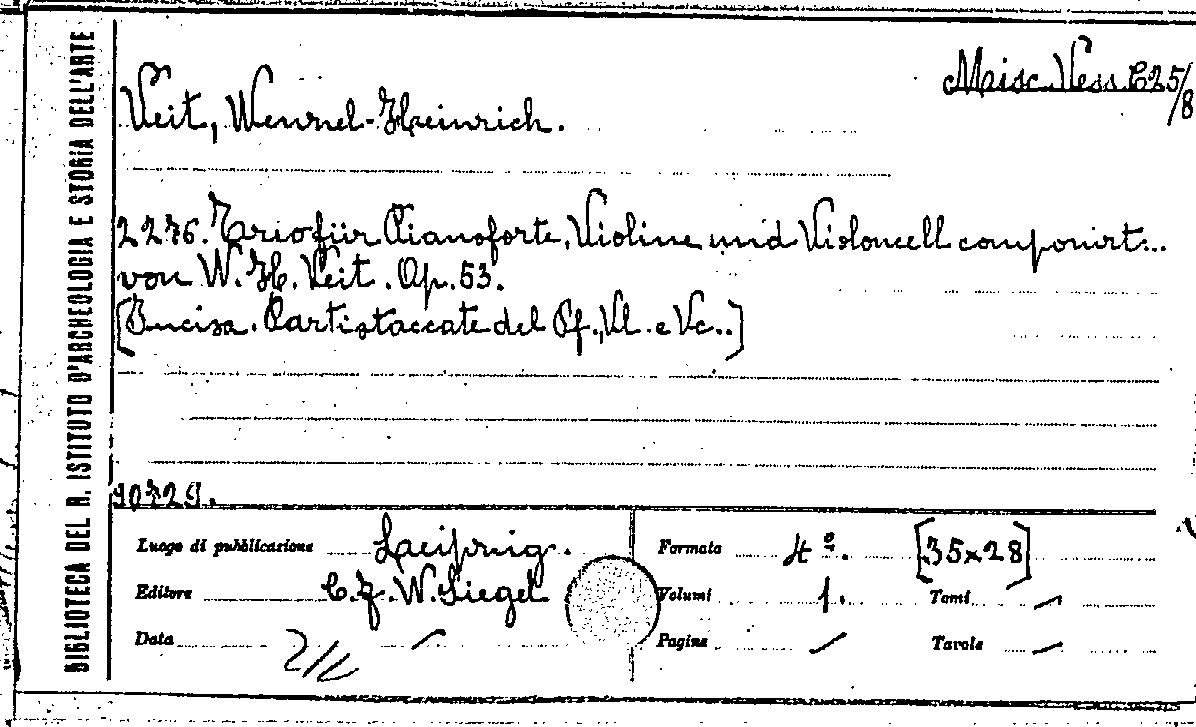 BIBLIOTECA DEL R. ISTITUTO D'ARCHEOLOGIA E STORIA DELL'ARTE
Misc. Vess. C25/8
Veit, Wennel-Heinrich.
2276. Trio für Pianoforte, Violine und Violoncell componirt...
von W. H. Veit. Op. 53.
[Incisa. Parti staccate del Pf., Vl. e Vc..]
90729.
Luogo di pubblicazione Leipnig.
Editore C. F. W. Siegel
Data /
Formato 4º. [35x28]
Volumi 1. Tomi /
Pagine / Tavole /